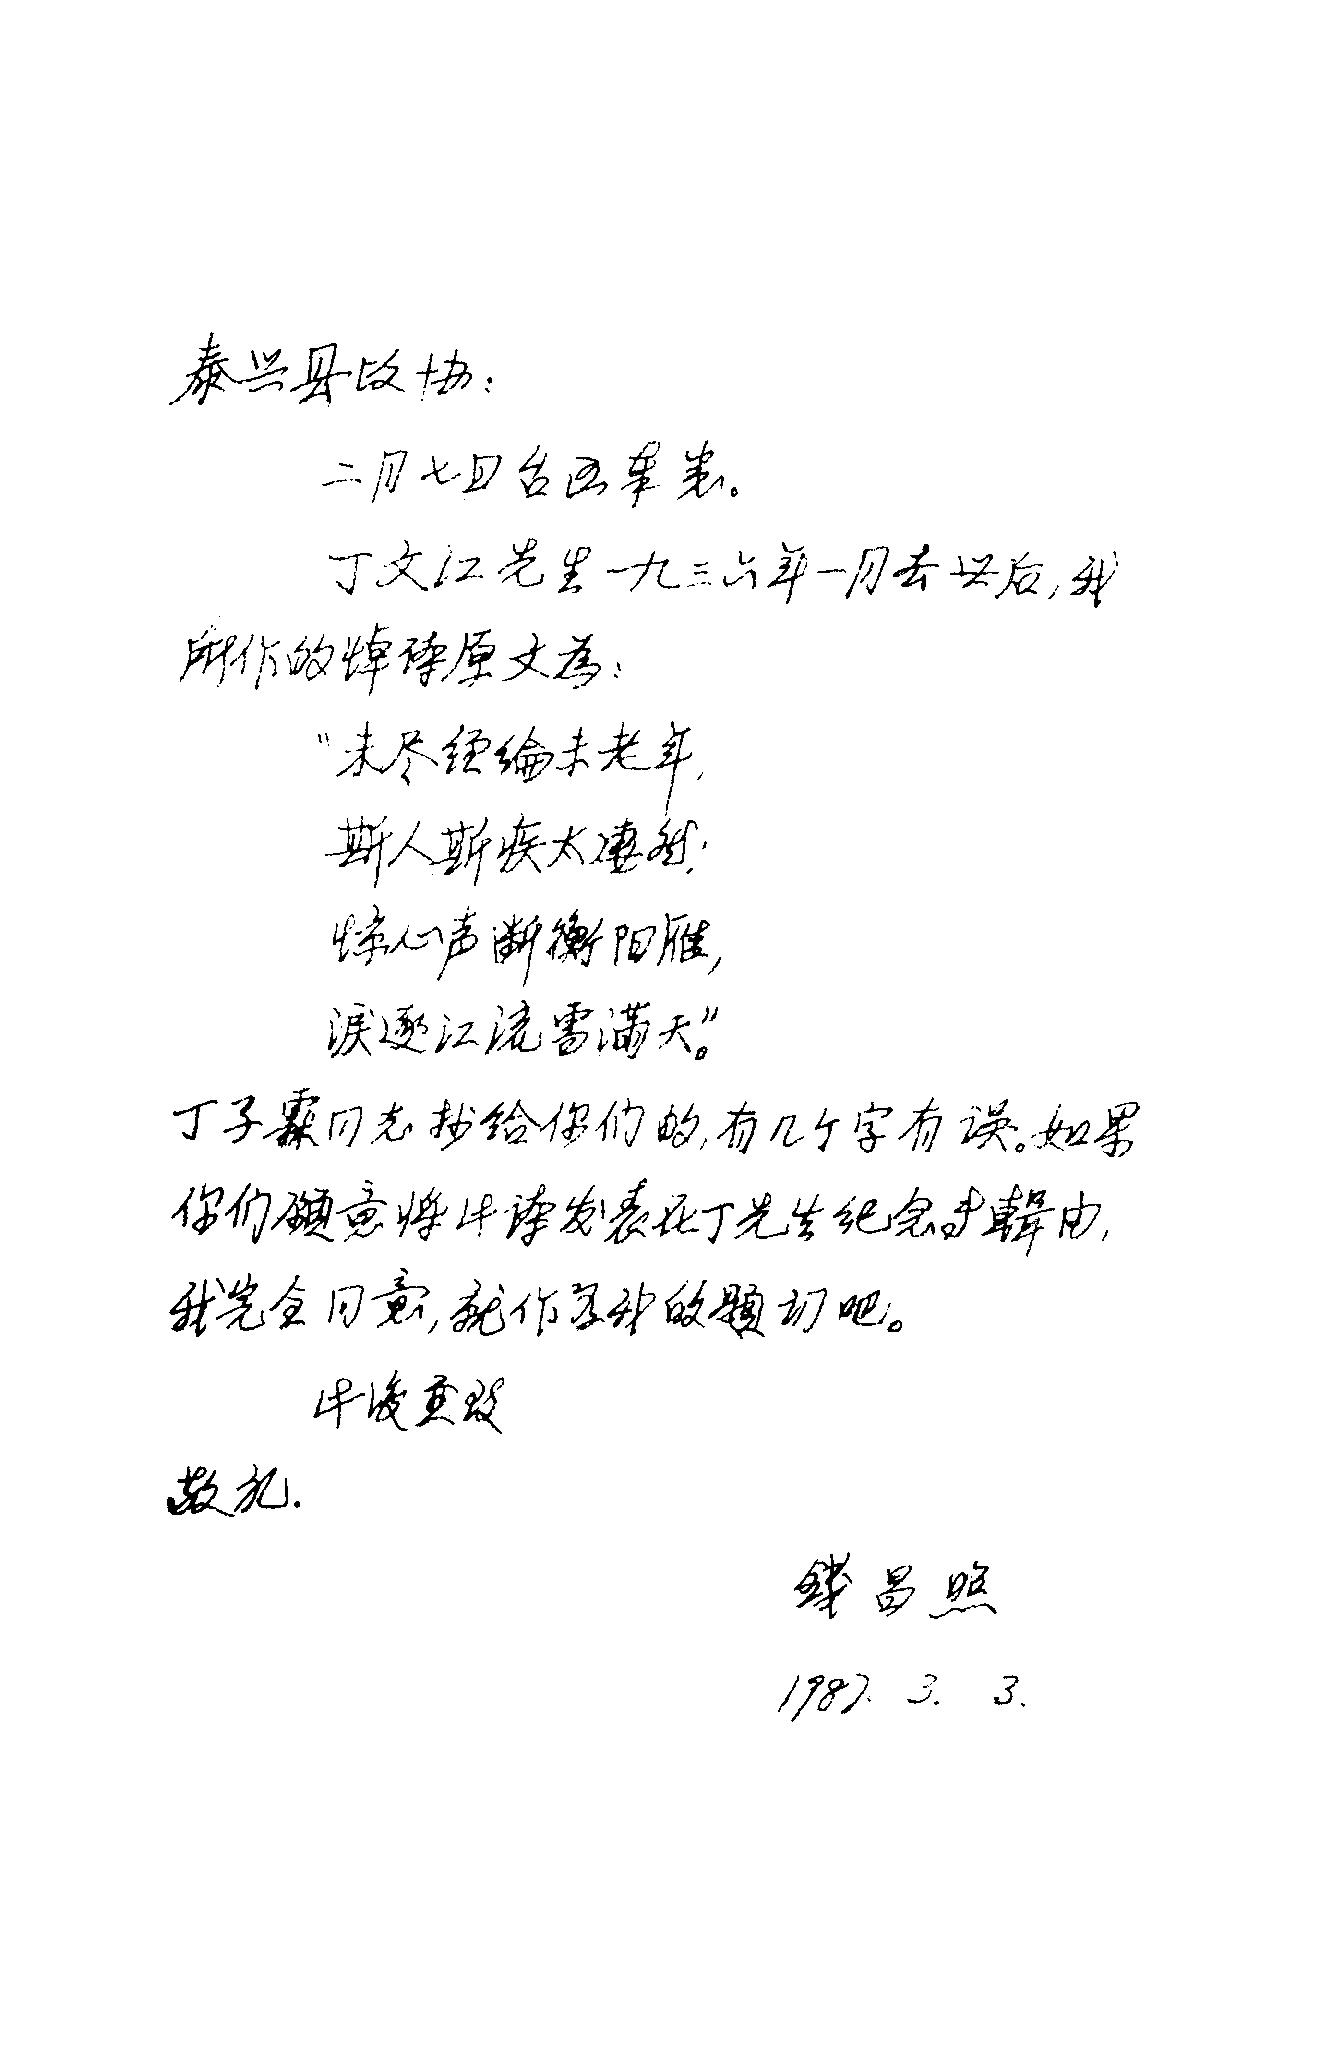 泰兴县政协：
二月七日台函奉悉。
丁文江先生一九三六年一月去世后，我
所作的悼诗原文為：
“未尽经纶未老年，
斯人斯疾太凄然；
惊心声断衡阳雁，
淚逐江流雪满天”。
丁子霖同志抄给你们的，有几个字有误。如果
你们愿意将此诗发表在丁先生纪念专輯内，
我完全同意，就作为我的题词吧。
此復並致
敬礼.
錢昌照
1987. 3. 3.